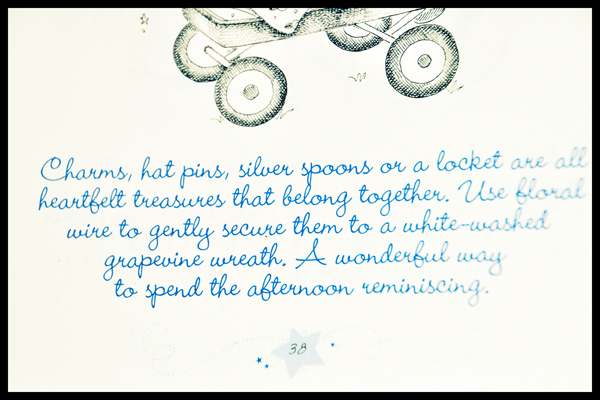 Charms, hat pins, silver spoons or a locket are all
heartfelt treasures that belong together. Use floral
wire to gently secure them to a white-washed
grapevine wreath. A wonderful way
to spend the afternoon reminiscing.
38